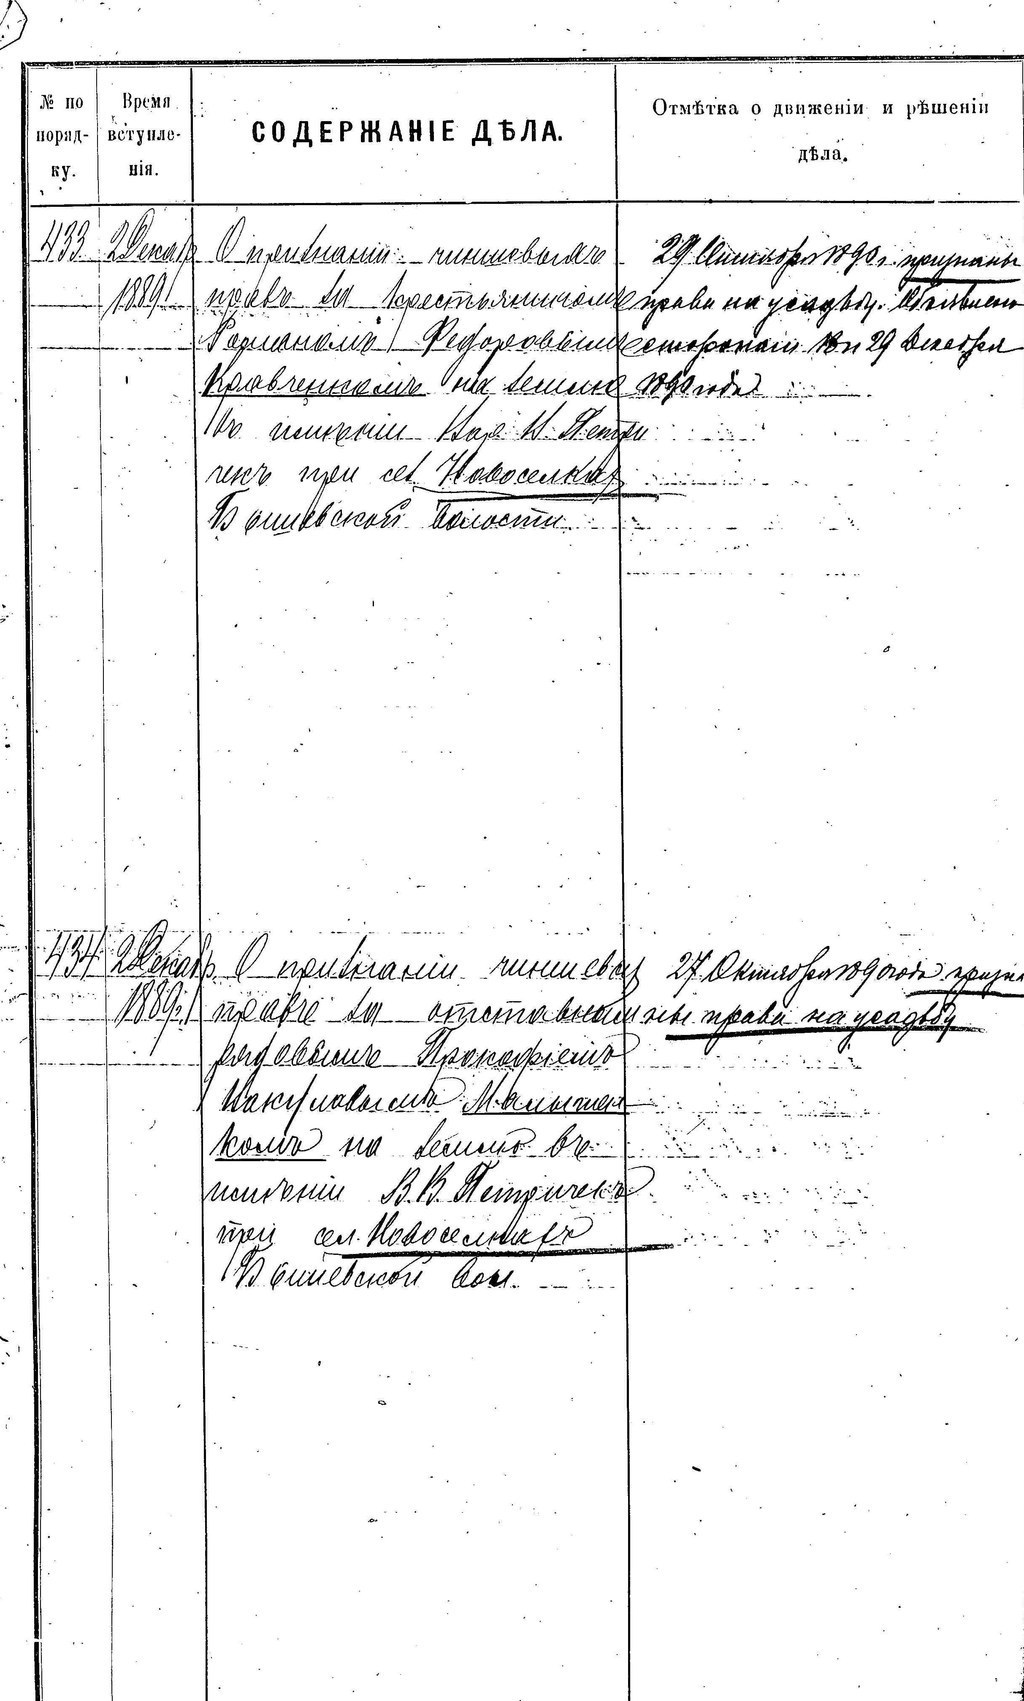 № по поряд-ку.
Время вступле-нія.
СОДЕРЖАНІЕ ДѢЛА.
Отмѣтка о движеніи и рѣшеніи
дѣла.
433
2 Декаб
1889
О признаніи чиншовыхъ
правъ за крестьяниномъ
Романомъ Федоровымъ
Кравченкомъ на землю
въ имѣніи Петри
чекъ при сел. Новоселках
Бышевской волости
29 Октября 1890 г. признаны
права на усадьбу. Объявлено
сторонамъ 18 и 29 Декабря
1890 года
434
2 Декаб
1889 г.
О признаніи чиншевых
правъ за отставным
рядовымъ Прокофіемъ
Малышен
комъ на землю въ
имѣніи В. В. Петричекъ
при сел. Новоселкахъ
Бышевской вол.
27 Октября 1890 года призна
ны права на усадьбу